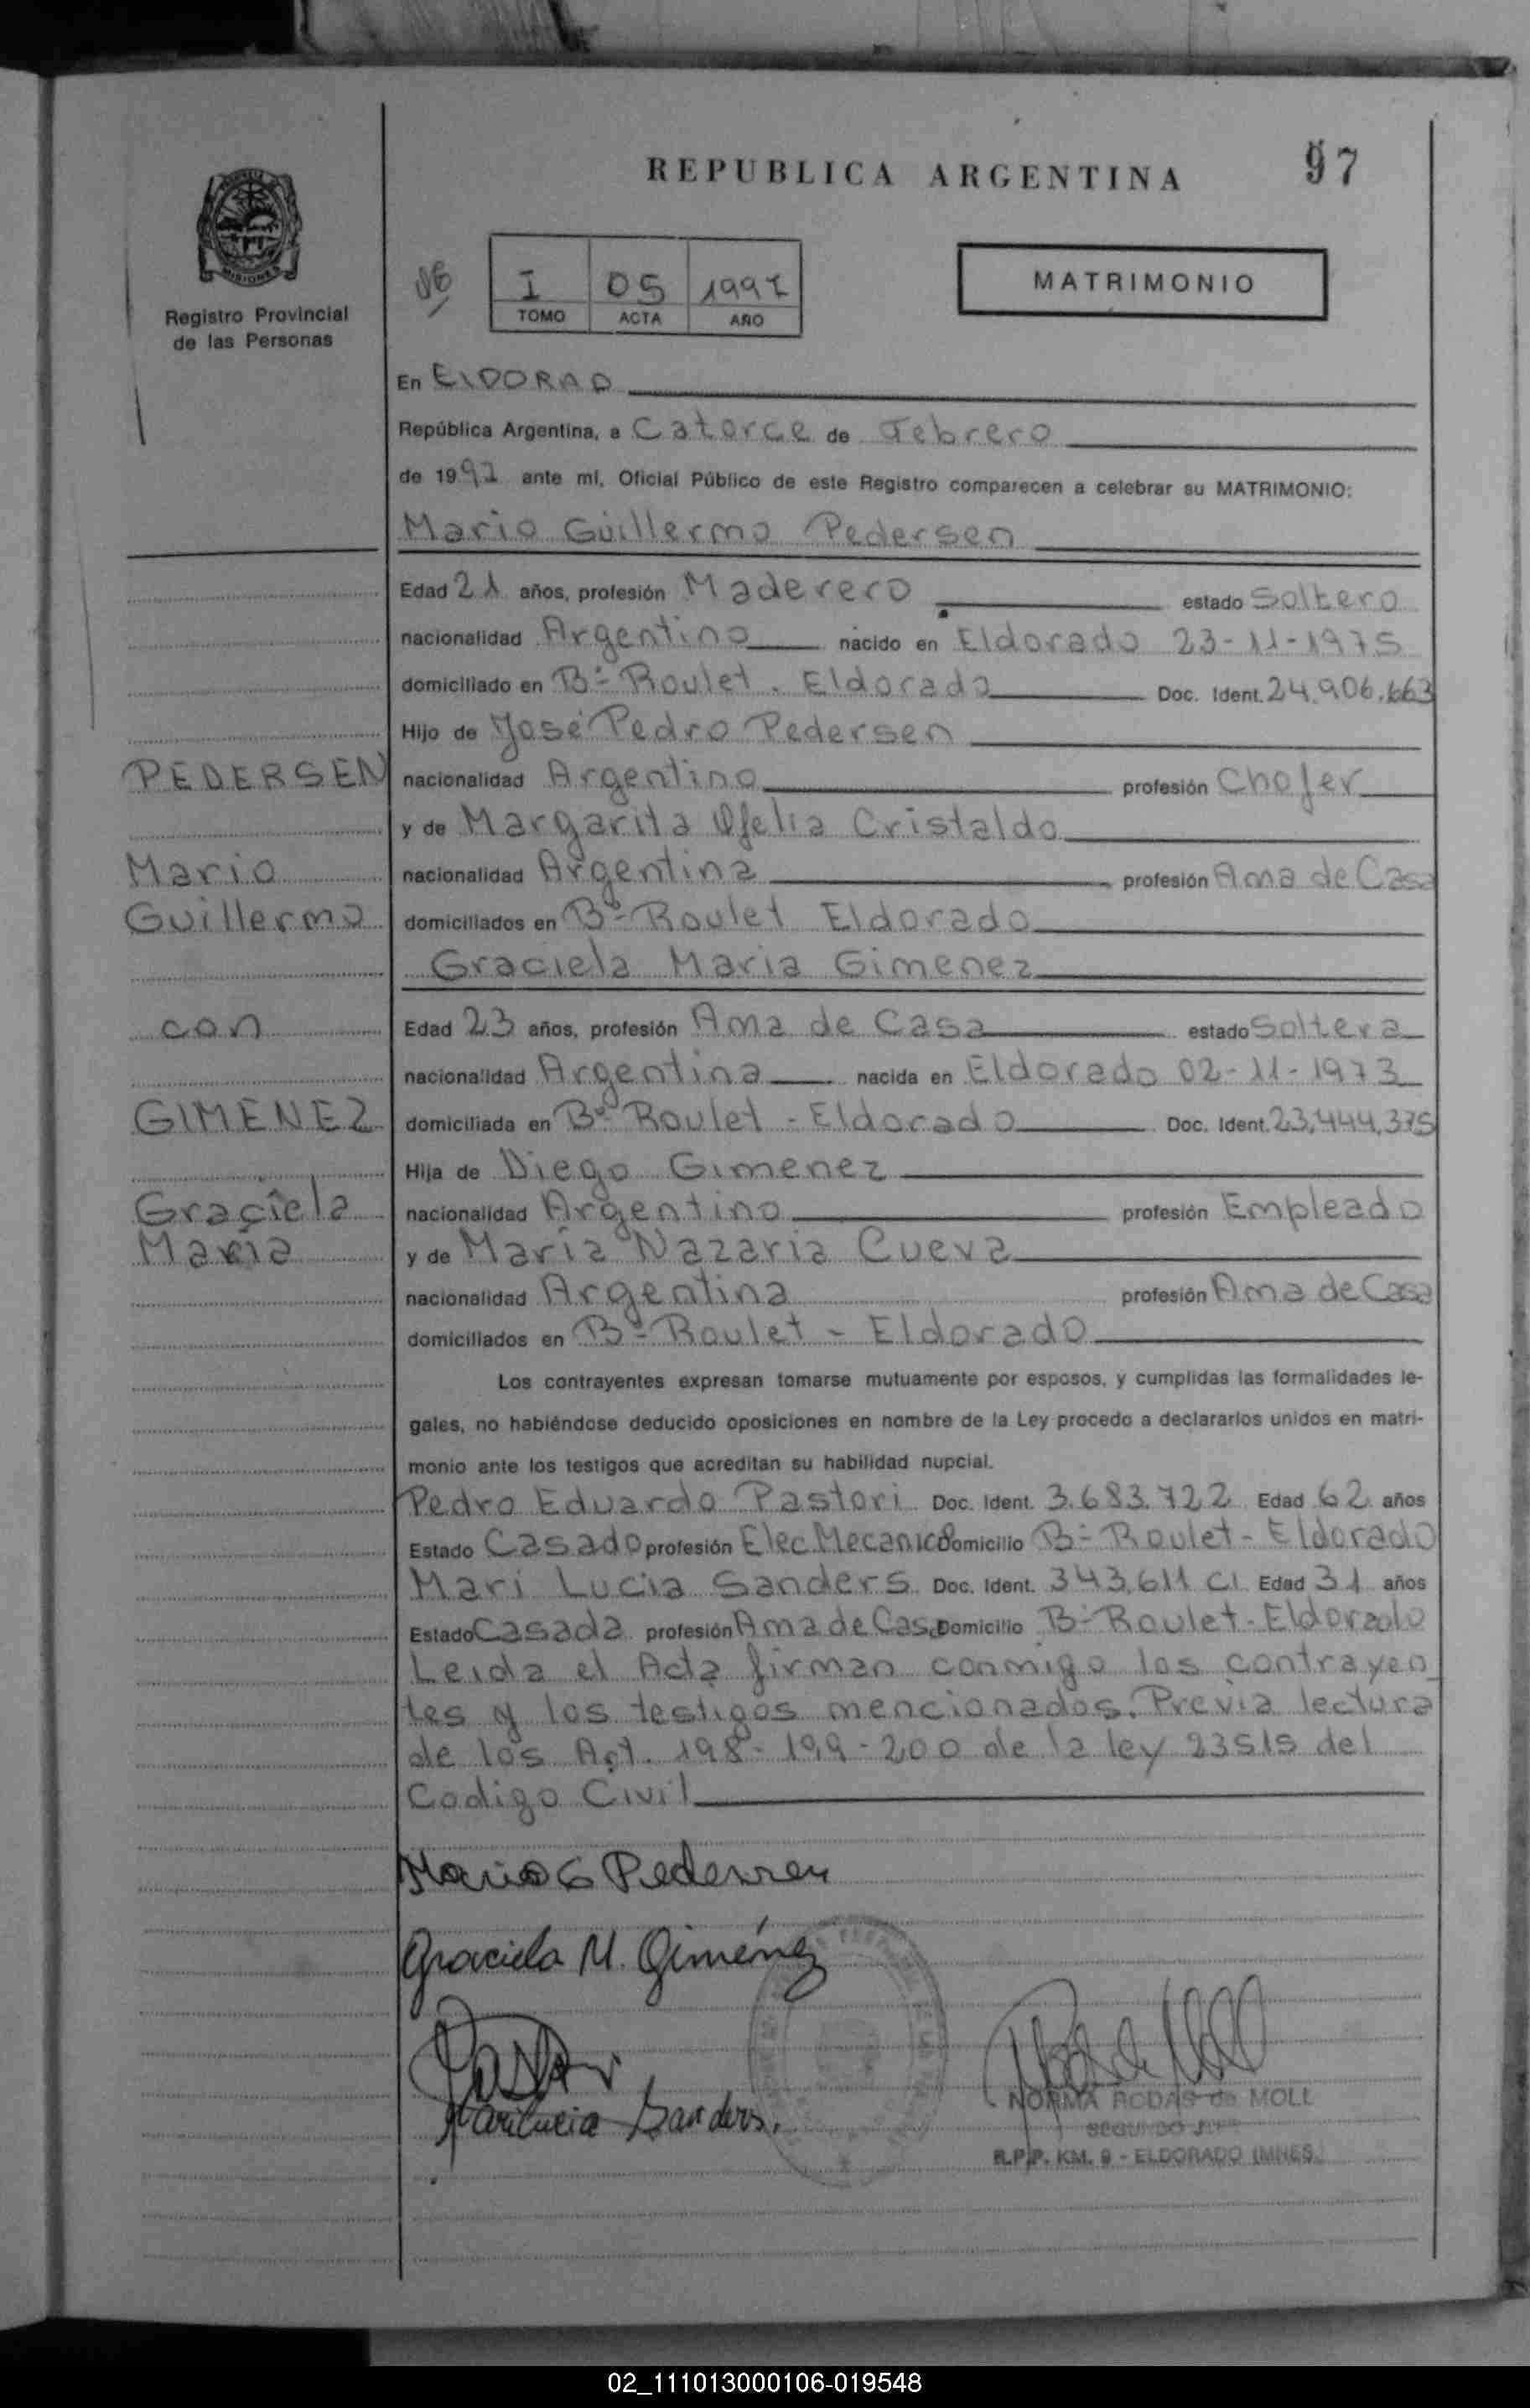 REPUBLICA ARGENTINA 97
MISIONES
Registro Provincial
de las Personas
I 05 1997
TOMO ACTA AÑO
MATRIMONIO
En ElDORADO
República Argentina, a Catorce de Febrero
de 1997 ante mí, Oficial Público de este Registro comparecen a celebrar su MATRIMONIO:
Mario Guillermo Pedersen
Edad 21 años, profesión Maderero estado Soltero
nacionalidad Argentino nacido en Eldorado 23-11-1975
domiciliado en Bº Roulet. Eldorado Doc. Ident. 24.906.663
Hijo de José Pedro Pedersen
PEDERSEN nacionalidad Argentino profesión Chofer
y de Margarita Ofelia Cristaldo
Mario nacionalidad Argentina profesión Ama de Casa
Guillermo domiciliados en Bº Roulet Eldorado
Graciela Maria Gimenez
con Edad 23 años, profesión Ama de Casa estado Soltera
nacionalidad Argentina nacida en Eldorado 02-11-1973
GIMENEZ domiciliada en Bº Roulet - Eldorado Doc. Ident. 23.444.375
Hija de Diego Gimenez
Graciela nacionalidad Argentino profesión Empleado
María y de María Nazaria Cueva
nacionalidad Argentina profesión Ama de Casa
domiciliados en Bº Roulet - Eldorado
Los contrayentes expresan tomarse mutuamente por esposos, y cumplidas las formalidades le-
gales, no habiéndose deducido oposiciones en nombre de la Ley procedo a declararlos unidos en matri-
monio ante los testigos que acreditan su habilidad nupcial.
Pedro Eduardo Pastori Doc. Ident. 3.683.722 Edad 62 años
Estado Casado profesión Elec.Mecanico Domicilio Bº Roulet - Eldorado
Mari Lucia Sanders Doc. Ident. 343.611 CI Edad 31 años
Estado Casada profesión Ama de Casa Domicilio Bº Roulet - Eldorado
Leida el Acta firman conmigo los contrayen
tes y los testigos mencionados. Previa lectura
de los Art. 198-199-200 de la ley 23515 del
Codigo Civil
Mario G Pedersen
Graciela M. Giménez
Marilucia Sanders.
NORMA RODAS de MOLL
SEGUNDO JEFE
R.P.P. KM. 9 - ELDORADO (MNES.)
02_111013000106-019548